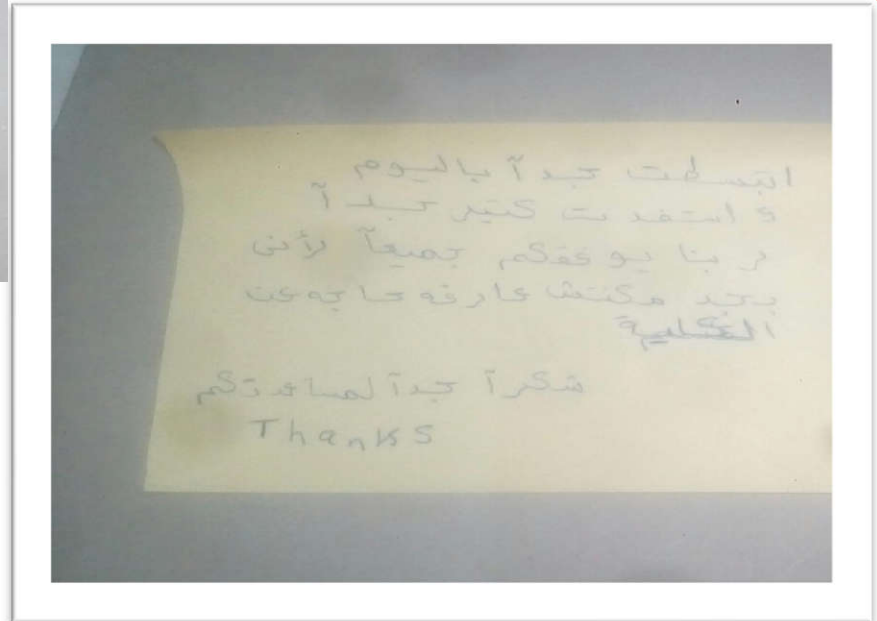 اتبسطت جداً باليوم
و استفدت كتير جداً
ربنا يوفقكم جميعاً لأنى
بجد مكنتش عارفه حاجه عن
الكلية
شكراً جداً لمساعدتكم
Thanks